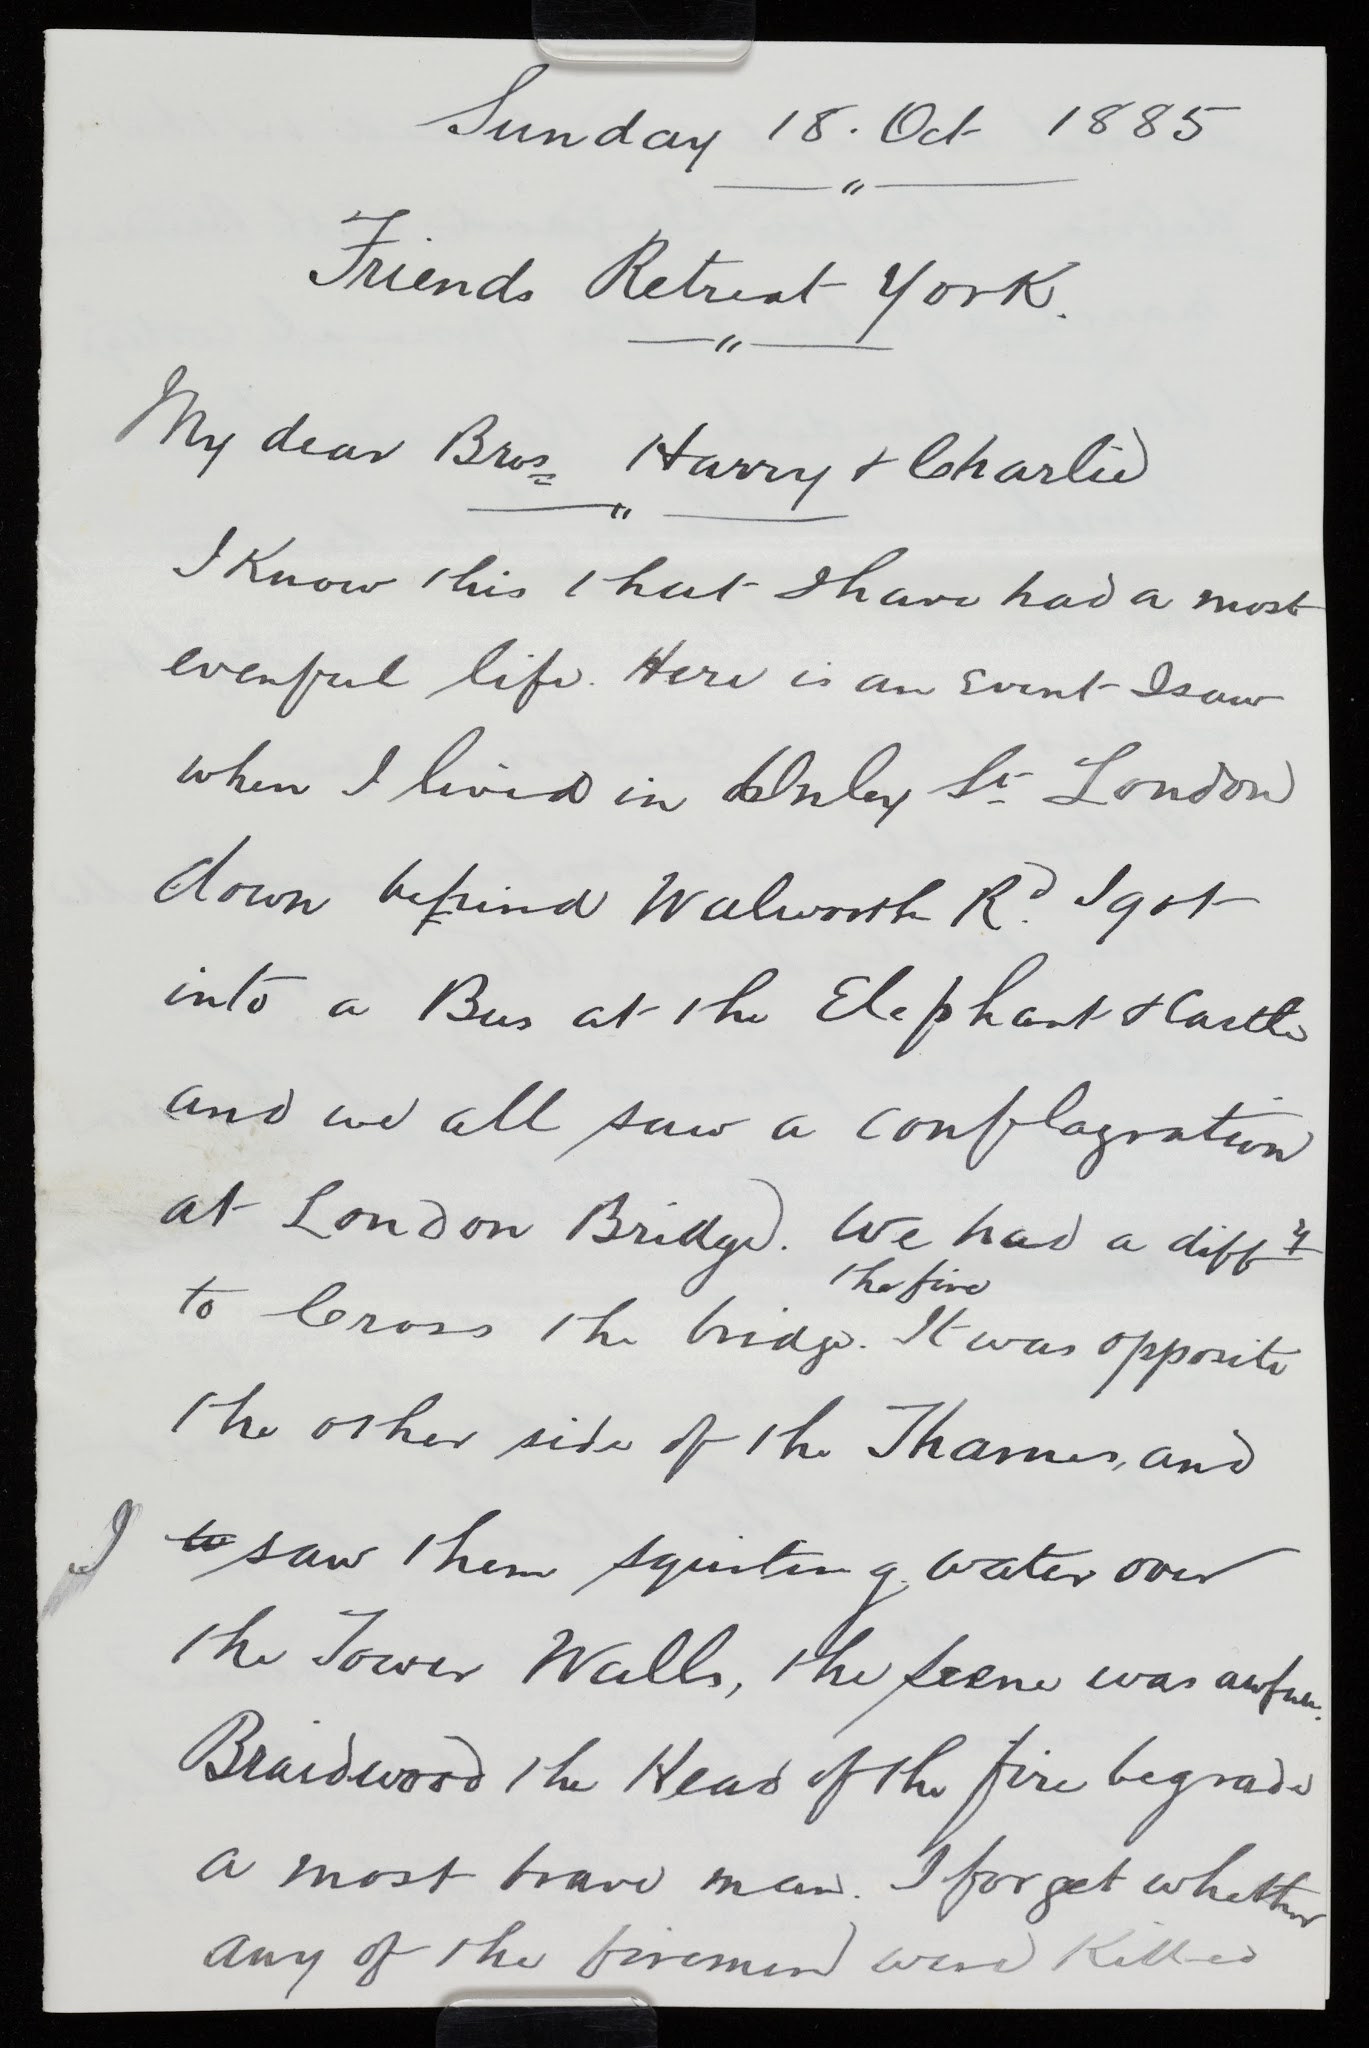 Sunday 18. Oct 1885
Friends Retreat York.
My dear Bros Harry & Charlie
I Know this that I have had a most
evenful life. Here is an Event I saw
when I lived in St London
down behind Walworth Rd. I got
into a Bus at the Elephant & Castle
and we all saw a conflagration
at London Bridge. We had a diffy
the fire
to Cross the bridge. It was opposite
the other side of the Thames, and
I saw them squirting water over
the Tower Walls, the scene was awful.
Braidwood the Head of the fire begrade
a most brave man. I forget whether
any of the firemen were Killed